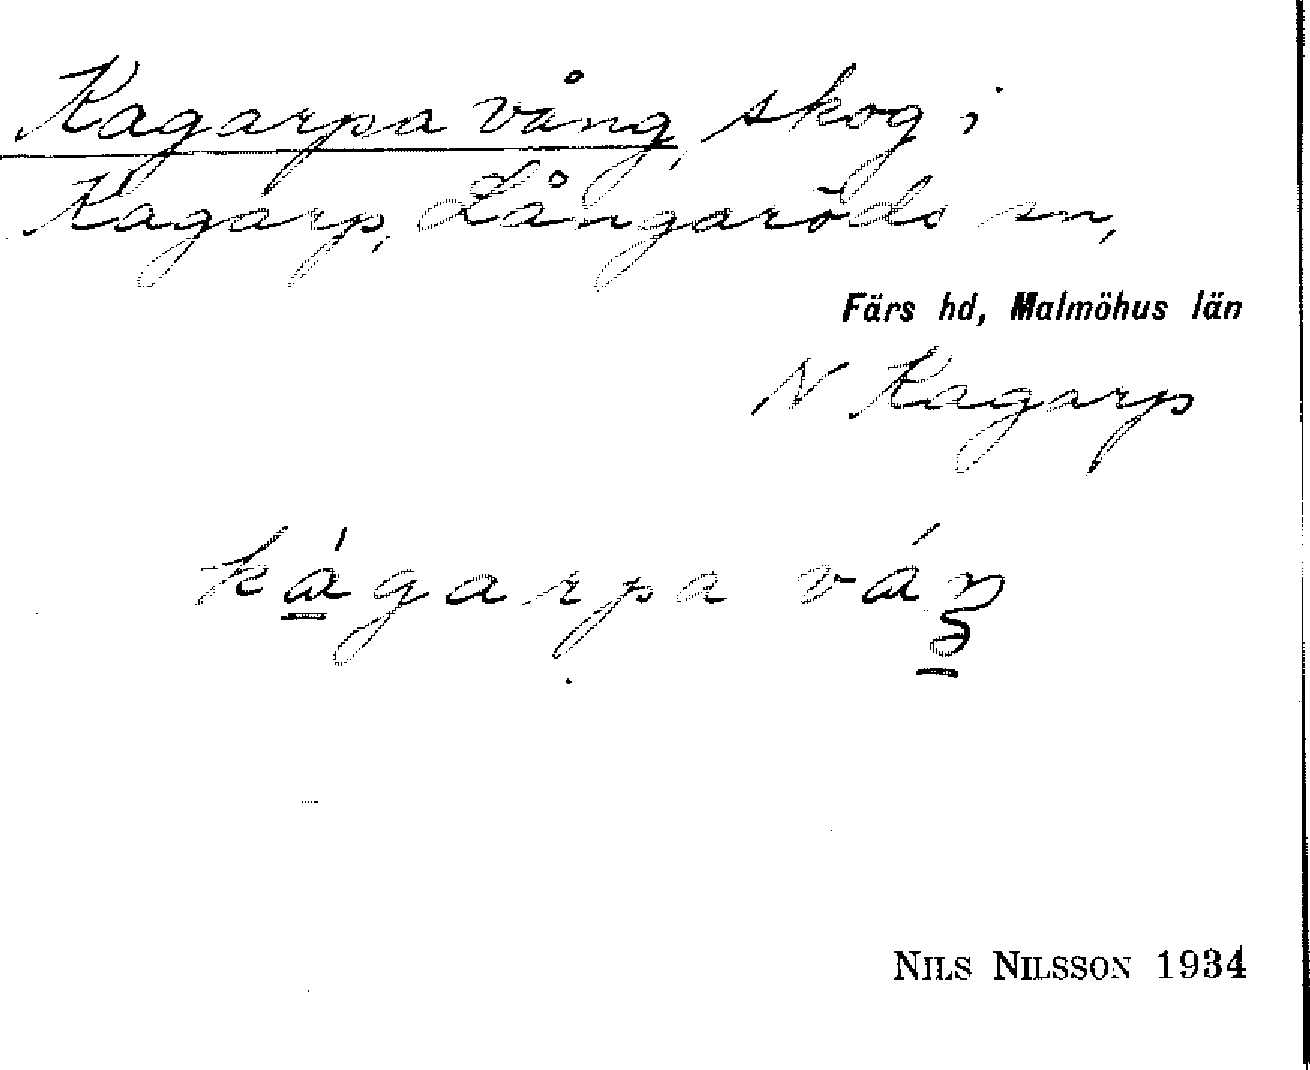 Kagarpa vång, skog i
Kagarp, Långaröds sn,
Färs hd, Malmöhus län
N Kagarp
kágarpa váŋ
NILS NILSSON 1934